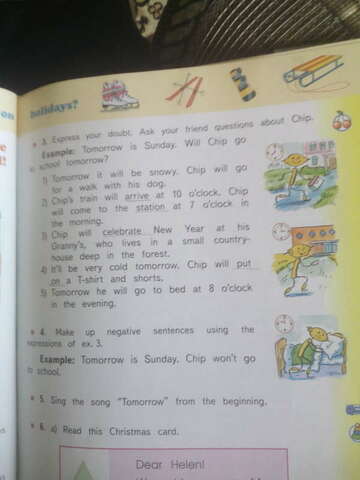 on
holidays?
3. Express your doubt. Ask your friend questions about Chip.
Example: Tomorrow is Sunday. Will Chip go
to school tomorrow?
1) Tomorrow it will be snowy. Chip will go
for a walk with his dog.
2) Chip's train will arrive at 10 o'clock. Chip
will come to the station at 7 o'clock in
the morning.
3) Chip will celebrate New Year at his
Granny's, who lives in a small country-
house deep in the forest.
4) It'll be very cold tomorrow. Chip will put
on a T-shirt and shorts.
5) Tomorrow he will go to bed at 8 o'clock
in the evening.
4. Make up negative sentences using the
expressions of ex. 3.
Example: Tomorrow is Sunday. Chip won't go
to school.
5. Sing the song "Tomorrow" from the beginning.
6. a) Read this Christmas card.
Dear Helen!